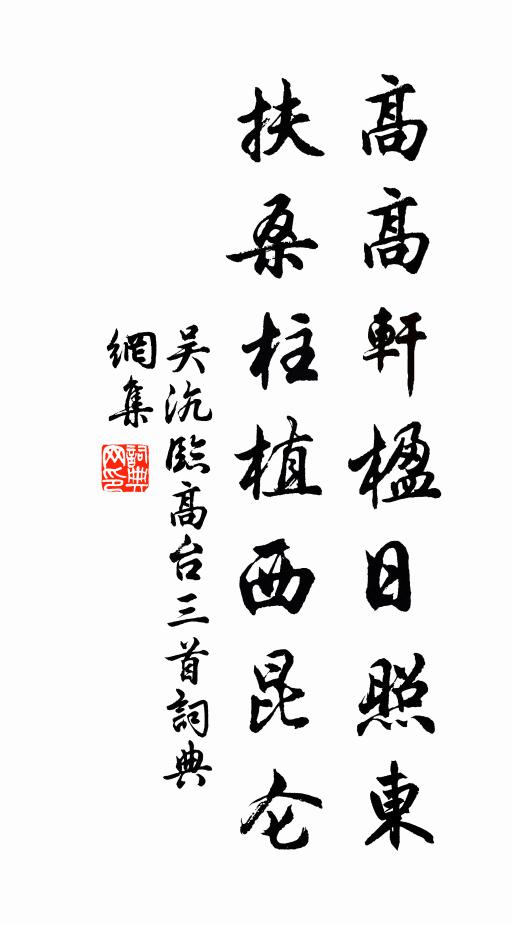 高高軒楹日照東
扶桑柱植西昆仑
吴沆臨高台三首詞典
網集
詞典
网印